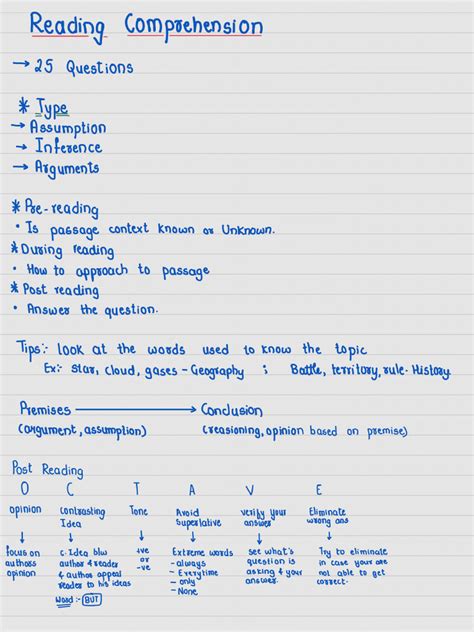 Reading Comprehension
→ 25 Questions
* Type
→ Assumption
→ Inference
→ Arguments
* Pre-reading
• Is passage context known or Unknown.
* During reading
• How to approach to passage
* Post reading
• Answer the question.
Tips:- look at the words used to know the topic
Ex:- star, cloud, gases - Geography ; Battle, territory, rule - History.
Premises → Conclusion
(argument, assumption) (reasioning, opinion based on premise)
Post Reading
O C T A V E
opinion Contrasting Idea Tone Avoid Superlative verify your answer Eliminate wrong ans
focus on authors opinion
c. Idea b/w author & reader & author appeal reader to his ideas
Word :- BUT
+ve or -ve
Extreme words
- always
- Everytime
- only
- None
see what's question is asking & your answer.
Try to eliminate in case your are not able to get correct.